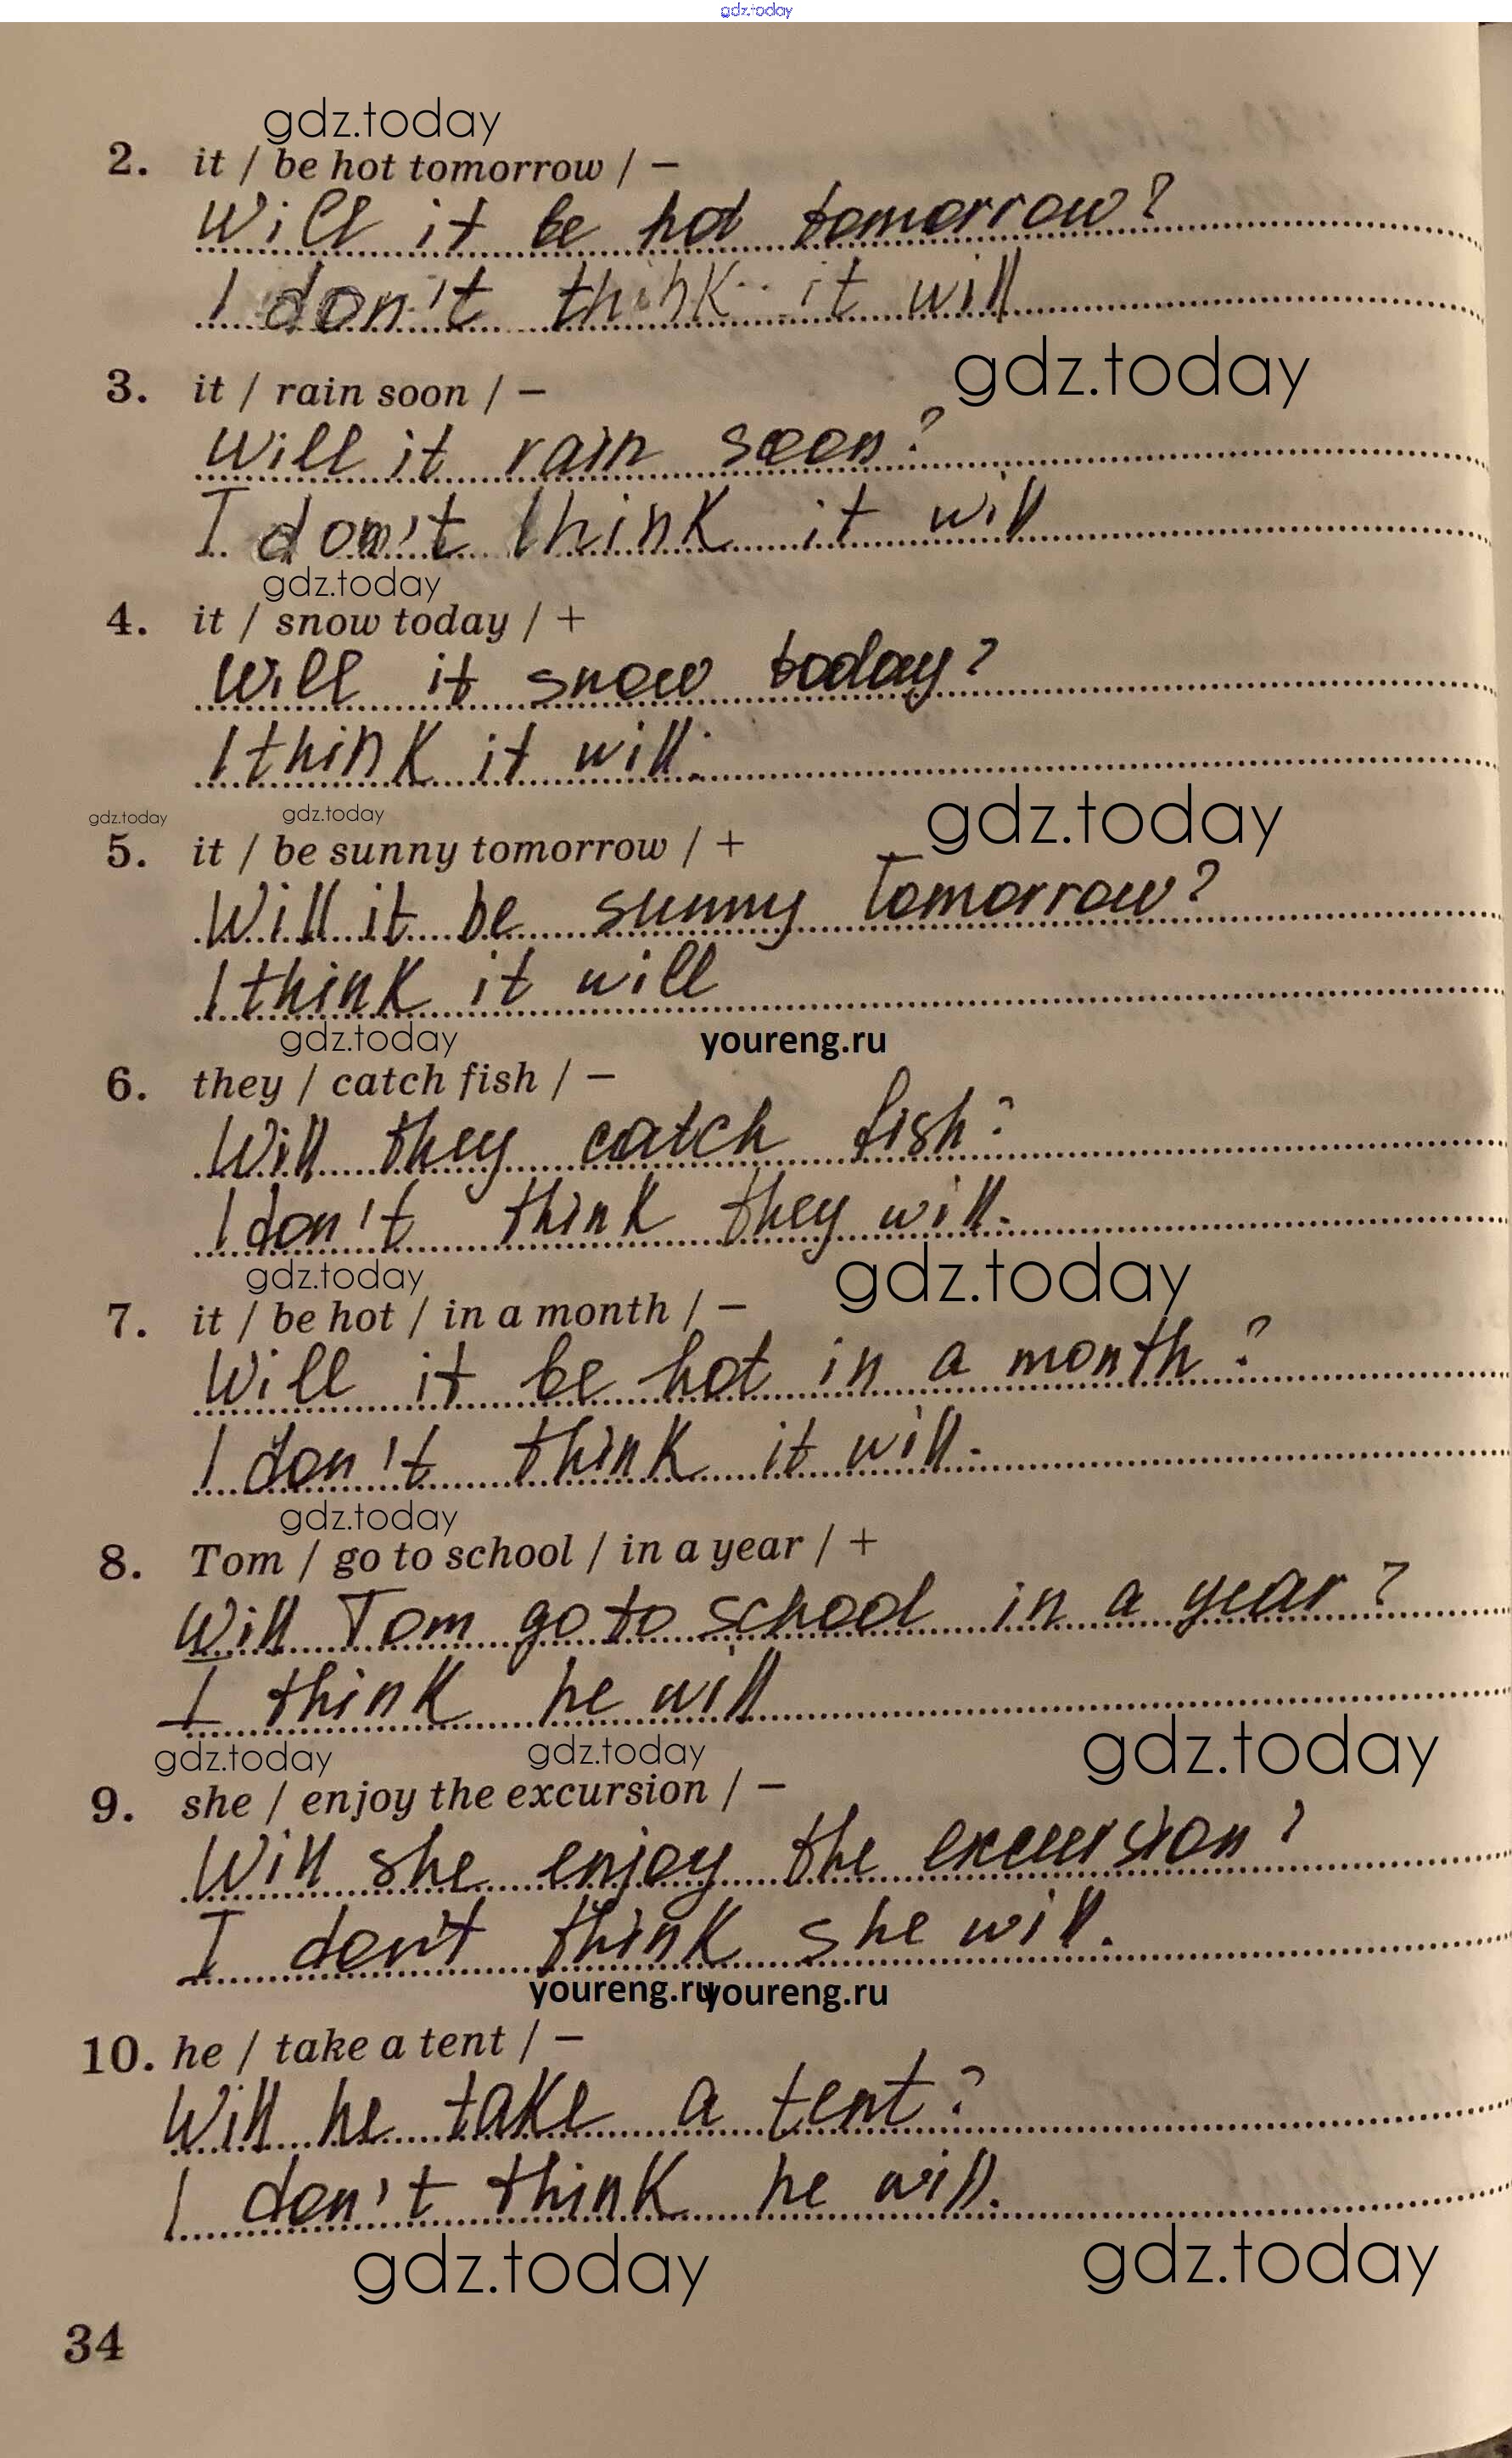 gdz.today
gdz.today
2. it / be hot tomorrow / –
Will it be hot tomorrow?
I don't think it will
gdz.today
3. it / rain soon / –
Will it rain soon?
I don't think it will
gdz.today
4. it / snow today / +
Will it snow today?
I think it will.
gdz.today gdz.today gdz.today
5. it / be sunny tomorrow / +
Will it be sunny Tomorrow?
I think it will
gdz.today youreng.ru
6. they / catch fish / –
Will they catch fish?
I don't think they will.
gdz.today gdz.today
7. it / be hot / in a month / –
Will it be hot in a month?
I don't think it will.
gdz.today
8. Tom / go to school / in a year / +
Will Tom go to school in a year?
I think he will
gdz.today gdz.today gdz.today
9. she / enjoy the excursion / –
Will she enjoy the excursion?
I don't think she will.
youreng.ru youreng.ru
10. he / take a tent / –
Will he take a tent?
I don't think he will.
gdz.today gdz.today
34